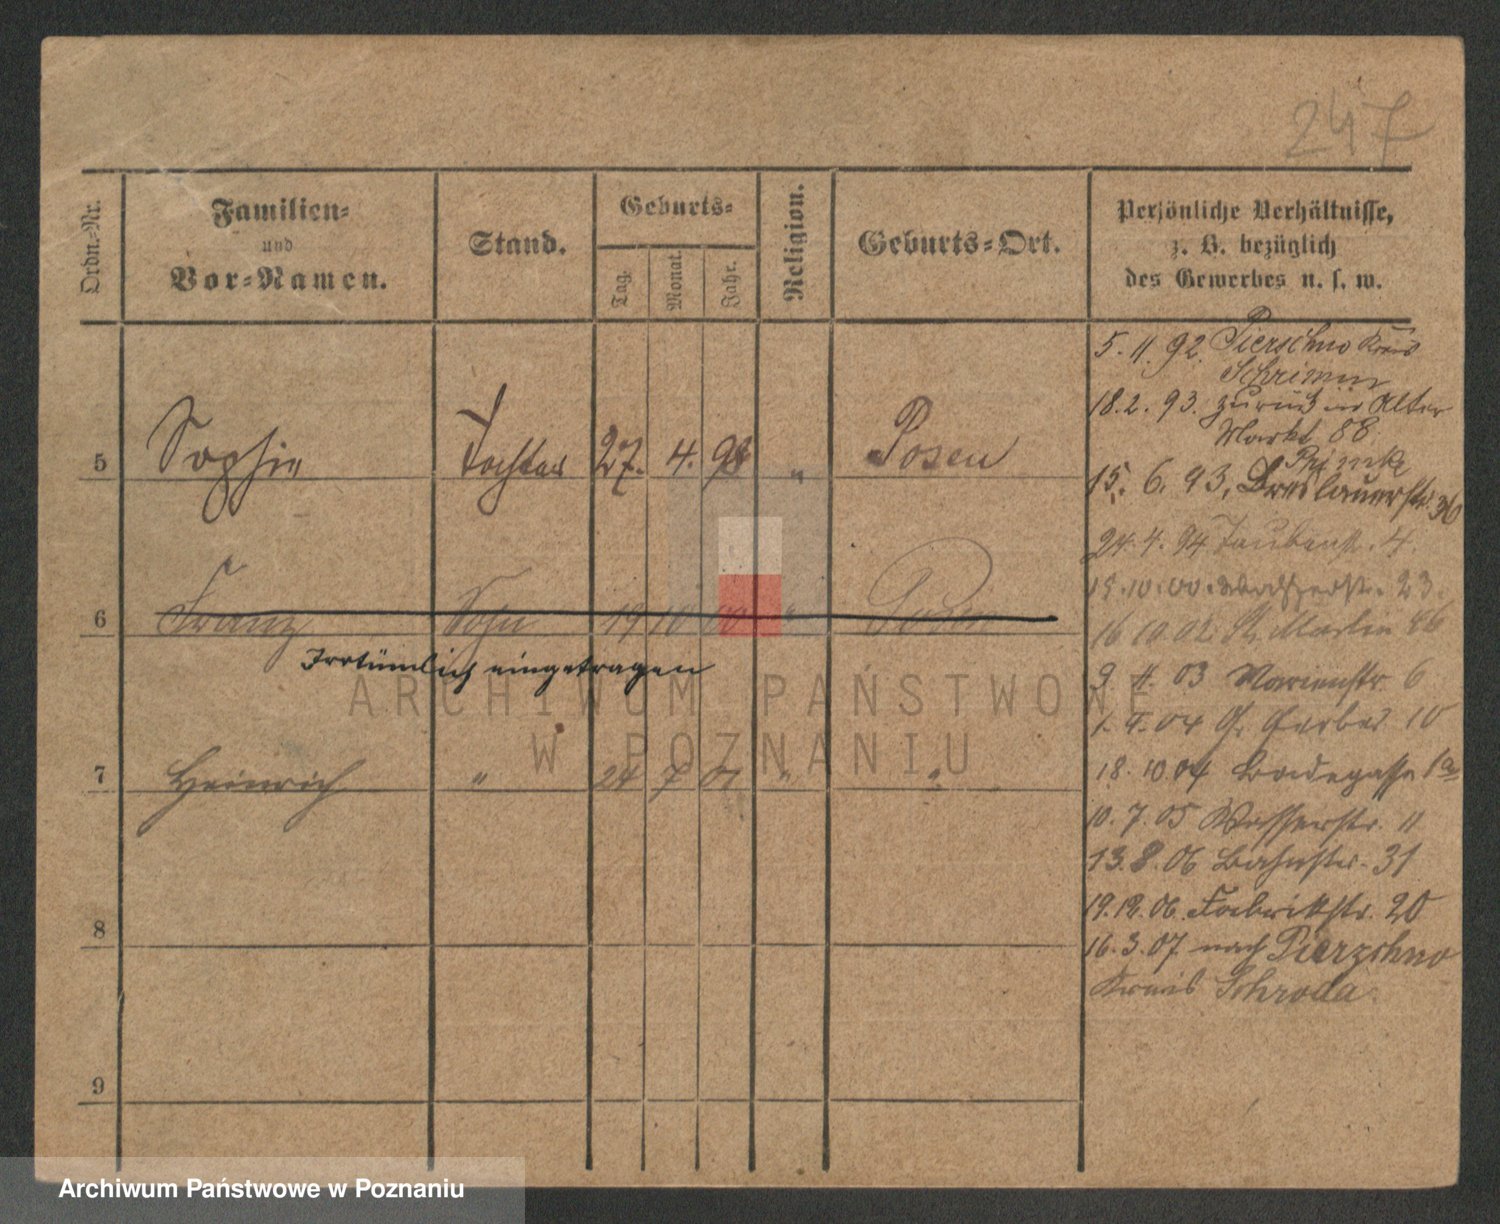 247
Ordn.-Nr.
Familien-
und
Vor-Namen.
Stand.
Geburts-
Tag.
Monat.
Jahr.
Religion.
Geburts-Ort.
Persönliche Verhältnisse,
z. B. bezüglich
des Gewerbes u. s. w.
5 Sophie Tochter 27. 4. 98 " Posen
6 Franz Sohn 19 10 00 " Posen
Irrtümlich eingetragen
7 Heinrich " 24 7 01 " "
8
9
5. 11. 92. Pierschno Kreis
Schrimm
18. 2. 93. zurück in Alter
Markt 88
15. 6. 93, Breslauerstr. 36
24. 4. 94 Taubenstr. 4.
15. 10. 00. 23.
16 10. 02. St. Martin 46
9. 11. 03 Marienstr. 6
1. 4. 04 Gr. Gerber 10
18. 10 04 1a
10. 7. 05 Wasserstr. 11
13. 8. 06 Bahnstr. 31
19. 12. 06. Fabrikstr. 20
16. 3. 07 nach Pierzchno
Kreis Schroda.
ARCHIWUM PAŃSTWOWE
W POZNANIU
Archiwum Państwowe w Poznaniu